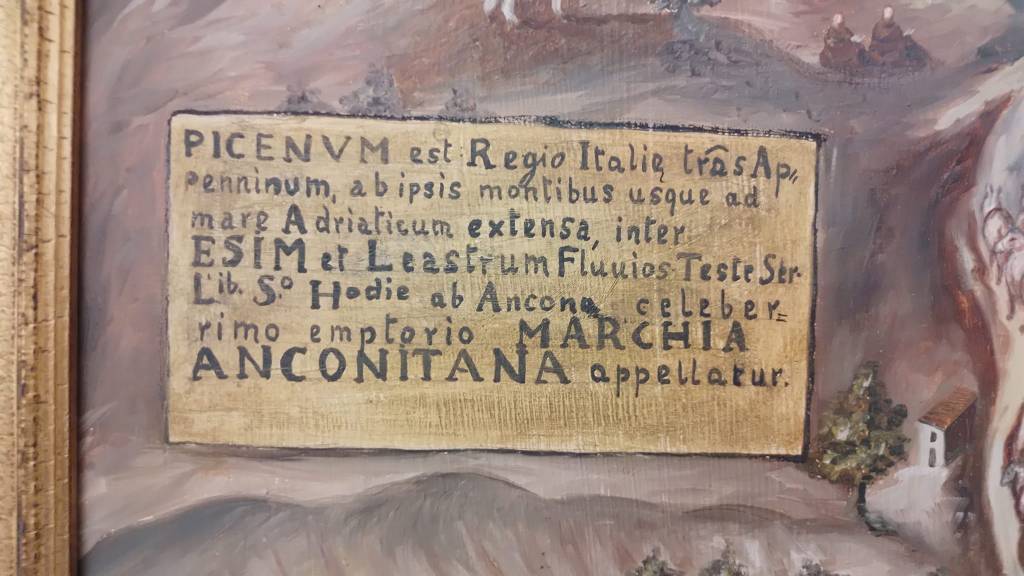 PICENVM est Regio Italię trãs Ap„
penninum, ab ipsis montibus usque ad
mare Adriaticum extensa, inter
ESIM et Leastrum Fluuios Teste Ser.
Lib. S.º Hodie ab Ancona celeber=
rimo emptorio MARCHIA
ANCONITANA appellatur.